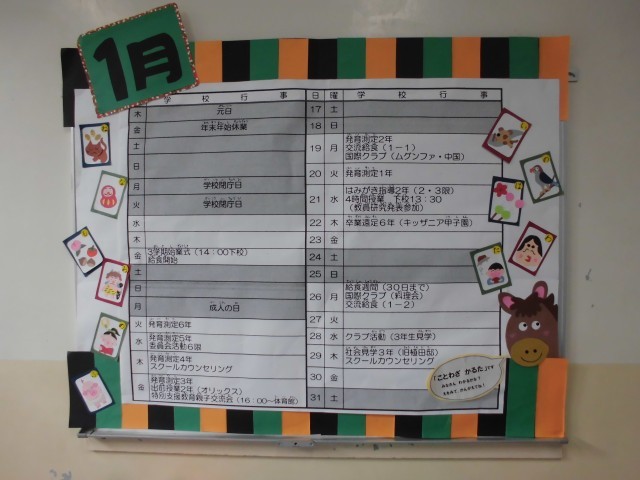 1月
学校行事
木 元日
金 年末年始休業
土
日
月 学校閉庁日
火 学校閉庁日
水
木
金 3学期始業式(14:00下校)
給食開始
土
日
月 成人の日
火 発育測定6年
水 発育測定5年
委員会活動6限
木 発育測定4年
スクールカウンセリング
金 発育測定3年
出前授業2年(オリックス)
特別支援教育親子交流会(16:00~体育館)
日 曜 学校行事
17 土
18 日
19 月 発育測定2年
交流給食(1-1)
国際クラブ(ムグンファ・中国)
20 火 発育測定1年
21 水 はみがき指導2年(2・3限)
4時間授業 下校13:30
(教員研究発表参加)
22 木 卒業遠足6年(キッザニア甲子園)
23 金
24 土
25 日
26 月 給食週間(30日まで)
国際クラブ(料理会)
交流給食(1-2)
27 火
28 水 クラブ活動(3年生見学)
29 木 社会見学3年(旧植田邸)
スクールカウンセリング
30 金
31 土
「ことわざ かるた」です